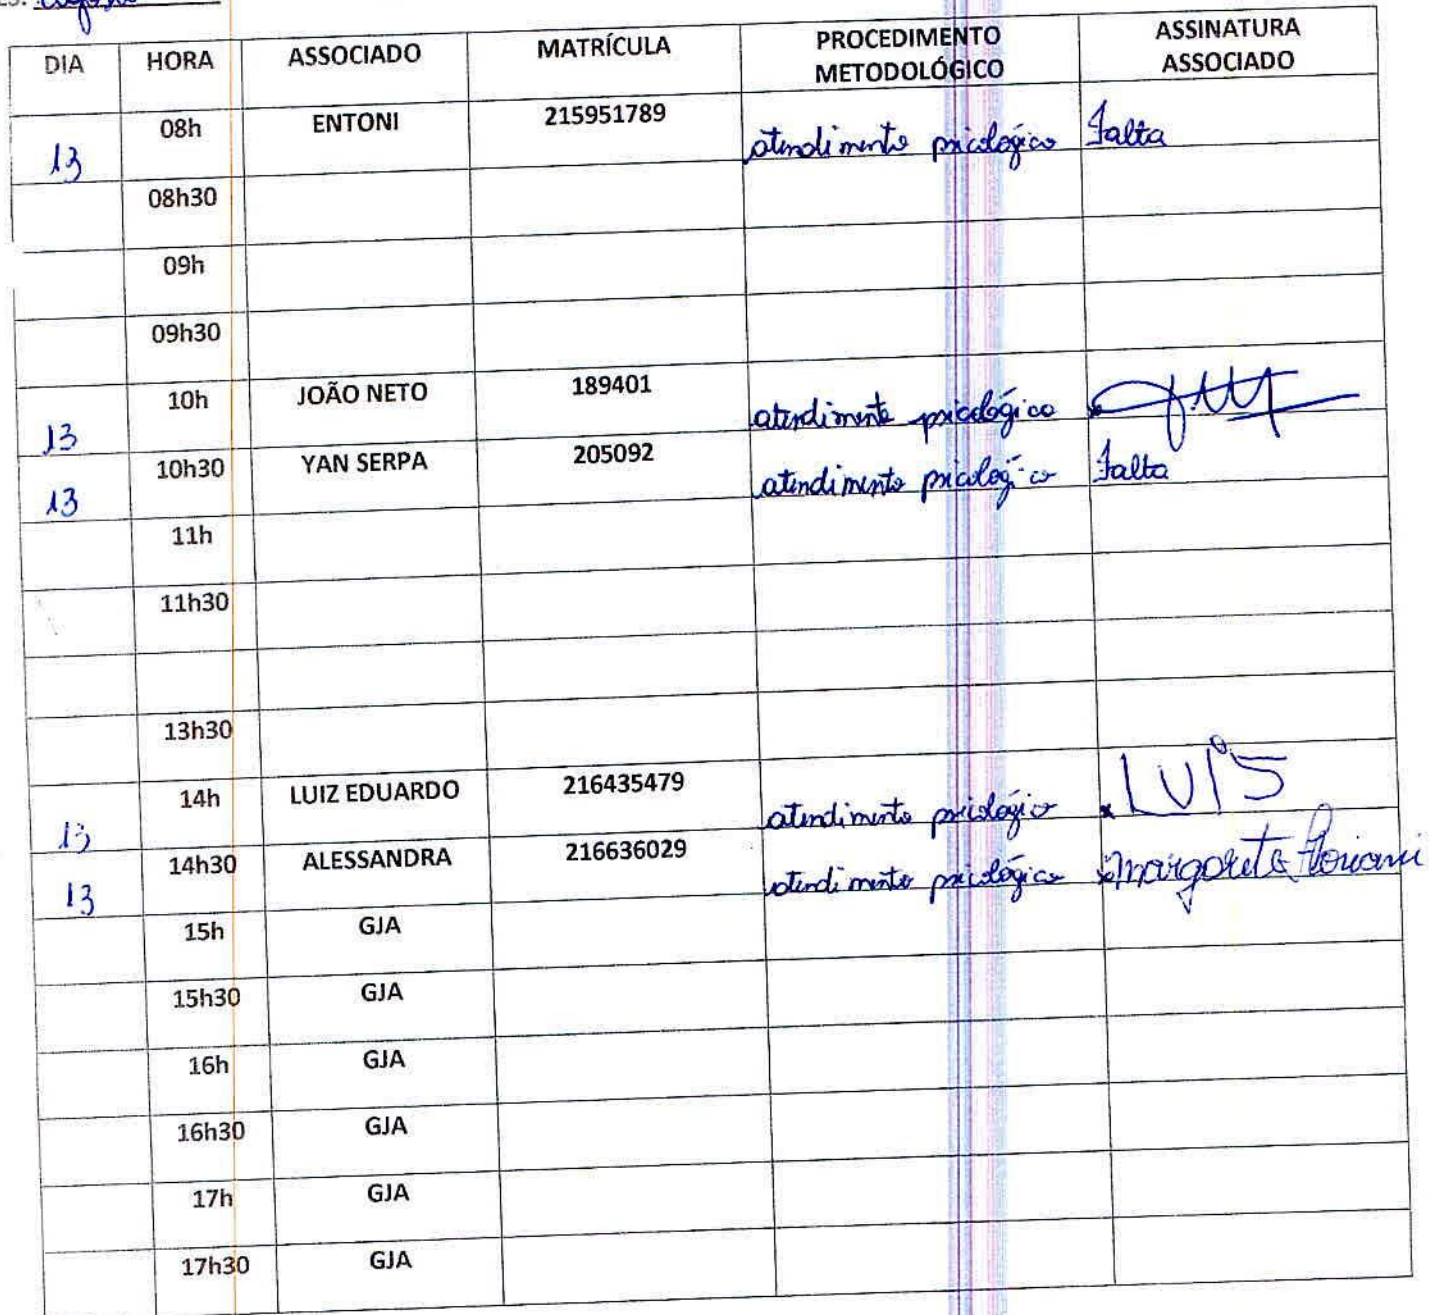 DIA HORA ASSOCIADO MATRÍCULA PROCEDIMENTO METODOLÓGICO ASSINATURA ASSOCIADO
13 08h ENTONI 215951789 atendimento psicológico Falta
08h30
09h
09h30
13 10h JOÃO NETO 189401 atendimento psicológico
13 10h30 YAN SERPA 205092 atendimento psicológico Falta
11h
11h30
13h30
13 14h LUIZ EDUARDO 216435479 atendimento psicológico x LUÍS
13 14h30 ALESSANDRA 216636029 atendimento psicológico x Margarete Floriani
15h GJA
15h30 GJA
16h GJA
16h30 GJA
17h GJA
17h30 GJA